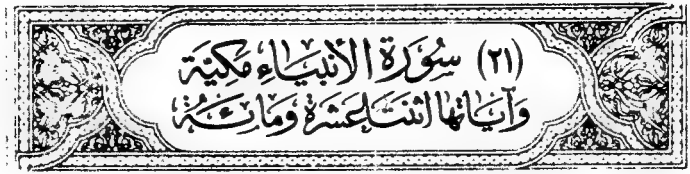 (٢١) سُورَة الأنبيَاءِ مَكِيَّة
وَآيَاتهَا اثنَتَا عَشرَة وَمَائِةٌ